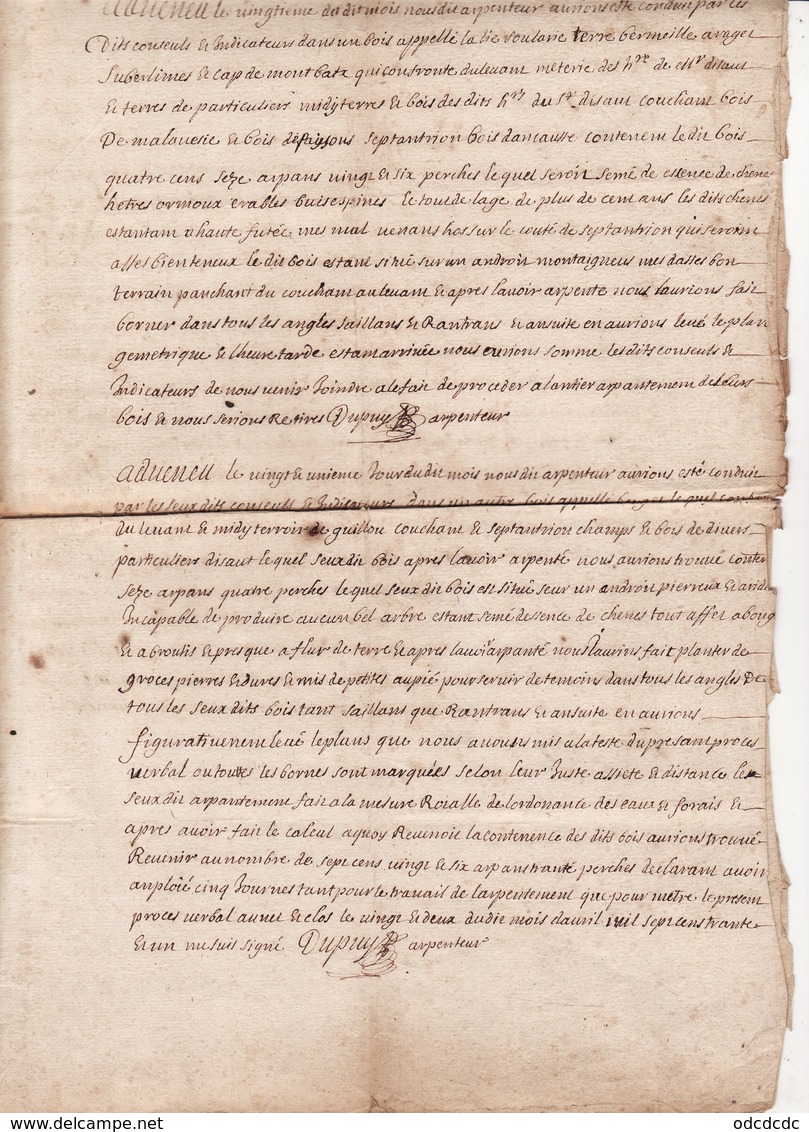 advenu le vingtieme du dit mois nous dit arpenteur aurions esté conduit par les
Dits consuls & Indicateurs dans un bois appellé la terre vermeille
& cap de mont qui confronte du levant meterie des h.rs de disaut
& terres de particuliers midy terres & bois des dits h.rs du s.r disaut coucham bois
De malavesie & bois de septantrion bois dancausse contenent le dit bois
quatre cens seze arpans vingt & six perches le quel seroit semé de essence de chene
hetres ormoux erables buis espines le tout de lage de plus de cent ans les dits chenes
estantam a haute futée mes mal venans hos sur le couté de septantrion qui seroint
asses bien teneux le dit bois estant situé sur un androit montaigneus mes dasses bon
terrain panchant du coucham au levant & apres lavoir arpenté nous laurions fait
borner dans tous les angles saillans & Rantrans & ansuite en aurions levé le plan
gemetrique & lheure tarde estam arrivée nous aurions somme les dits consuls &
Indicateurs de nous venir Joindre a le fait de proceder a lantier arpantement de leurs
bois & nous serions Retires Dupuy arpenteur
advenu le vingt & unieme Jour du dit mois nous dit arpenteur aurions esté conduit
par les seux dits consuls & Indicateurs dans un autre bois appellé le quel
du levant & midy terroir de guillou coucham & septantrion champs & bois de divers
particuliers disaut le quel seux dit bois apres lavoir arpenté nous aurions trouvé conten
seze arpans quatre perches le quel seux dit bois est situé seur un androit pierreux & aride
Incapable de produire aucun bel arbre estant semé dessence de chenes tout affet aboug
& abroutis & presque a flur de terre & apres lavoir arpanté nous laurins fait planter de
groces pierres & dures & mis de petites au pié pour servir de temoins dans tous les angles De
tous les seux dits bois tant saillans que Rantrans & ansuite en aurions
figurativenem levé le plans que nous avouns mis a la teste du presam proces
verbal ou touttes les bornes sont marquées selon leur Juste assiete & distance le
seux dit arpantement fait a la mesure Roialle de lordonance des eaux & forais &
apres avoir fait le calcul a quoy Revenoit la contenence des dits bois aurions trouvé
Revenir au nombre de sept cens vingt & six arpans tranté perches declarant avoir
anploié cinq Journes tant pour le travais de larpentement que pour metre le present
proces verbal au net & clos le vingt & deux du dit mois davril mil sept cens trante
& un me suis signé Dupuy arpenteur
odcdcdc